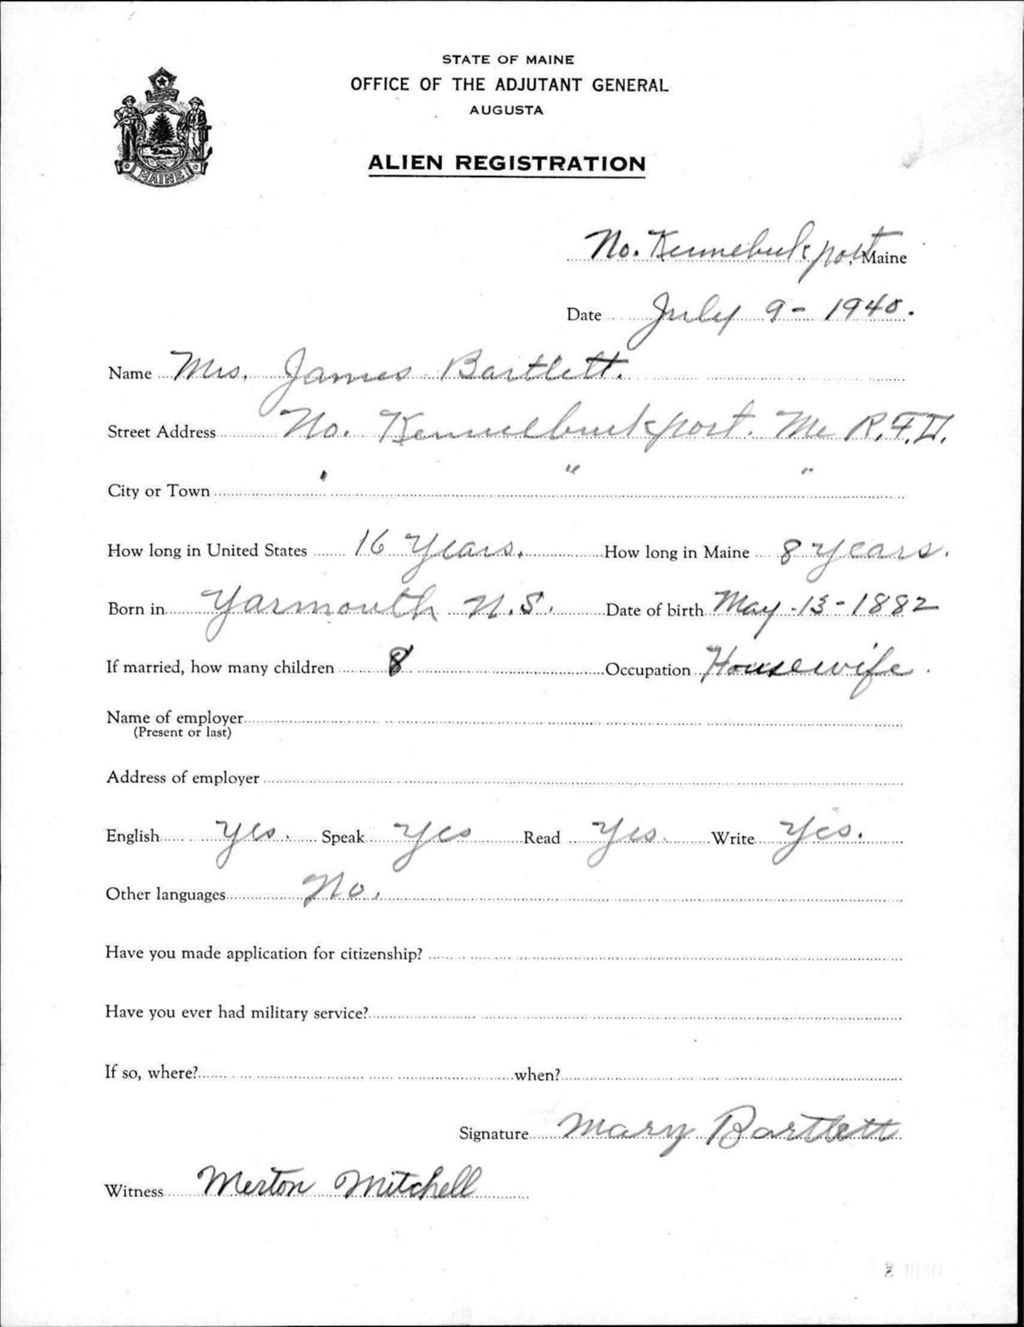 STATE OF MAINE
OFFICE OF THE ADJUTANT GENERAL
AUGUSTA
ALIEN REGISTRATION
MAINE
No. Kennebunkport, Maine
Date July 9 - 1940.
Name Mrs. James Bartlett.
Street Address No. Kennebunkport. Me R.F.D.
City or Town " " "
How long in United States 16 Years. How long in Maine 8 years.
Born in Yarmouth N.S. Date of birth May - 13 - 1882
If married, how many children 8 Occupation Housewife.
Name of employer
(Present or last)
Address of employer
English Yes. Speak Yes Read Yes. Write Yes.
Other languages No.
Have you made application for citizenship?
Have you ever had military service?
If so, where? when?
Signature Mary Bartlett
Witness Merton Mitchell